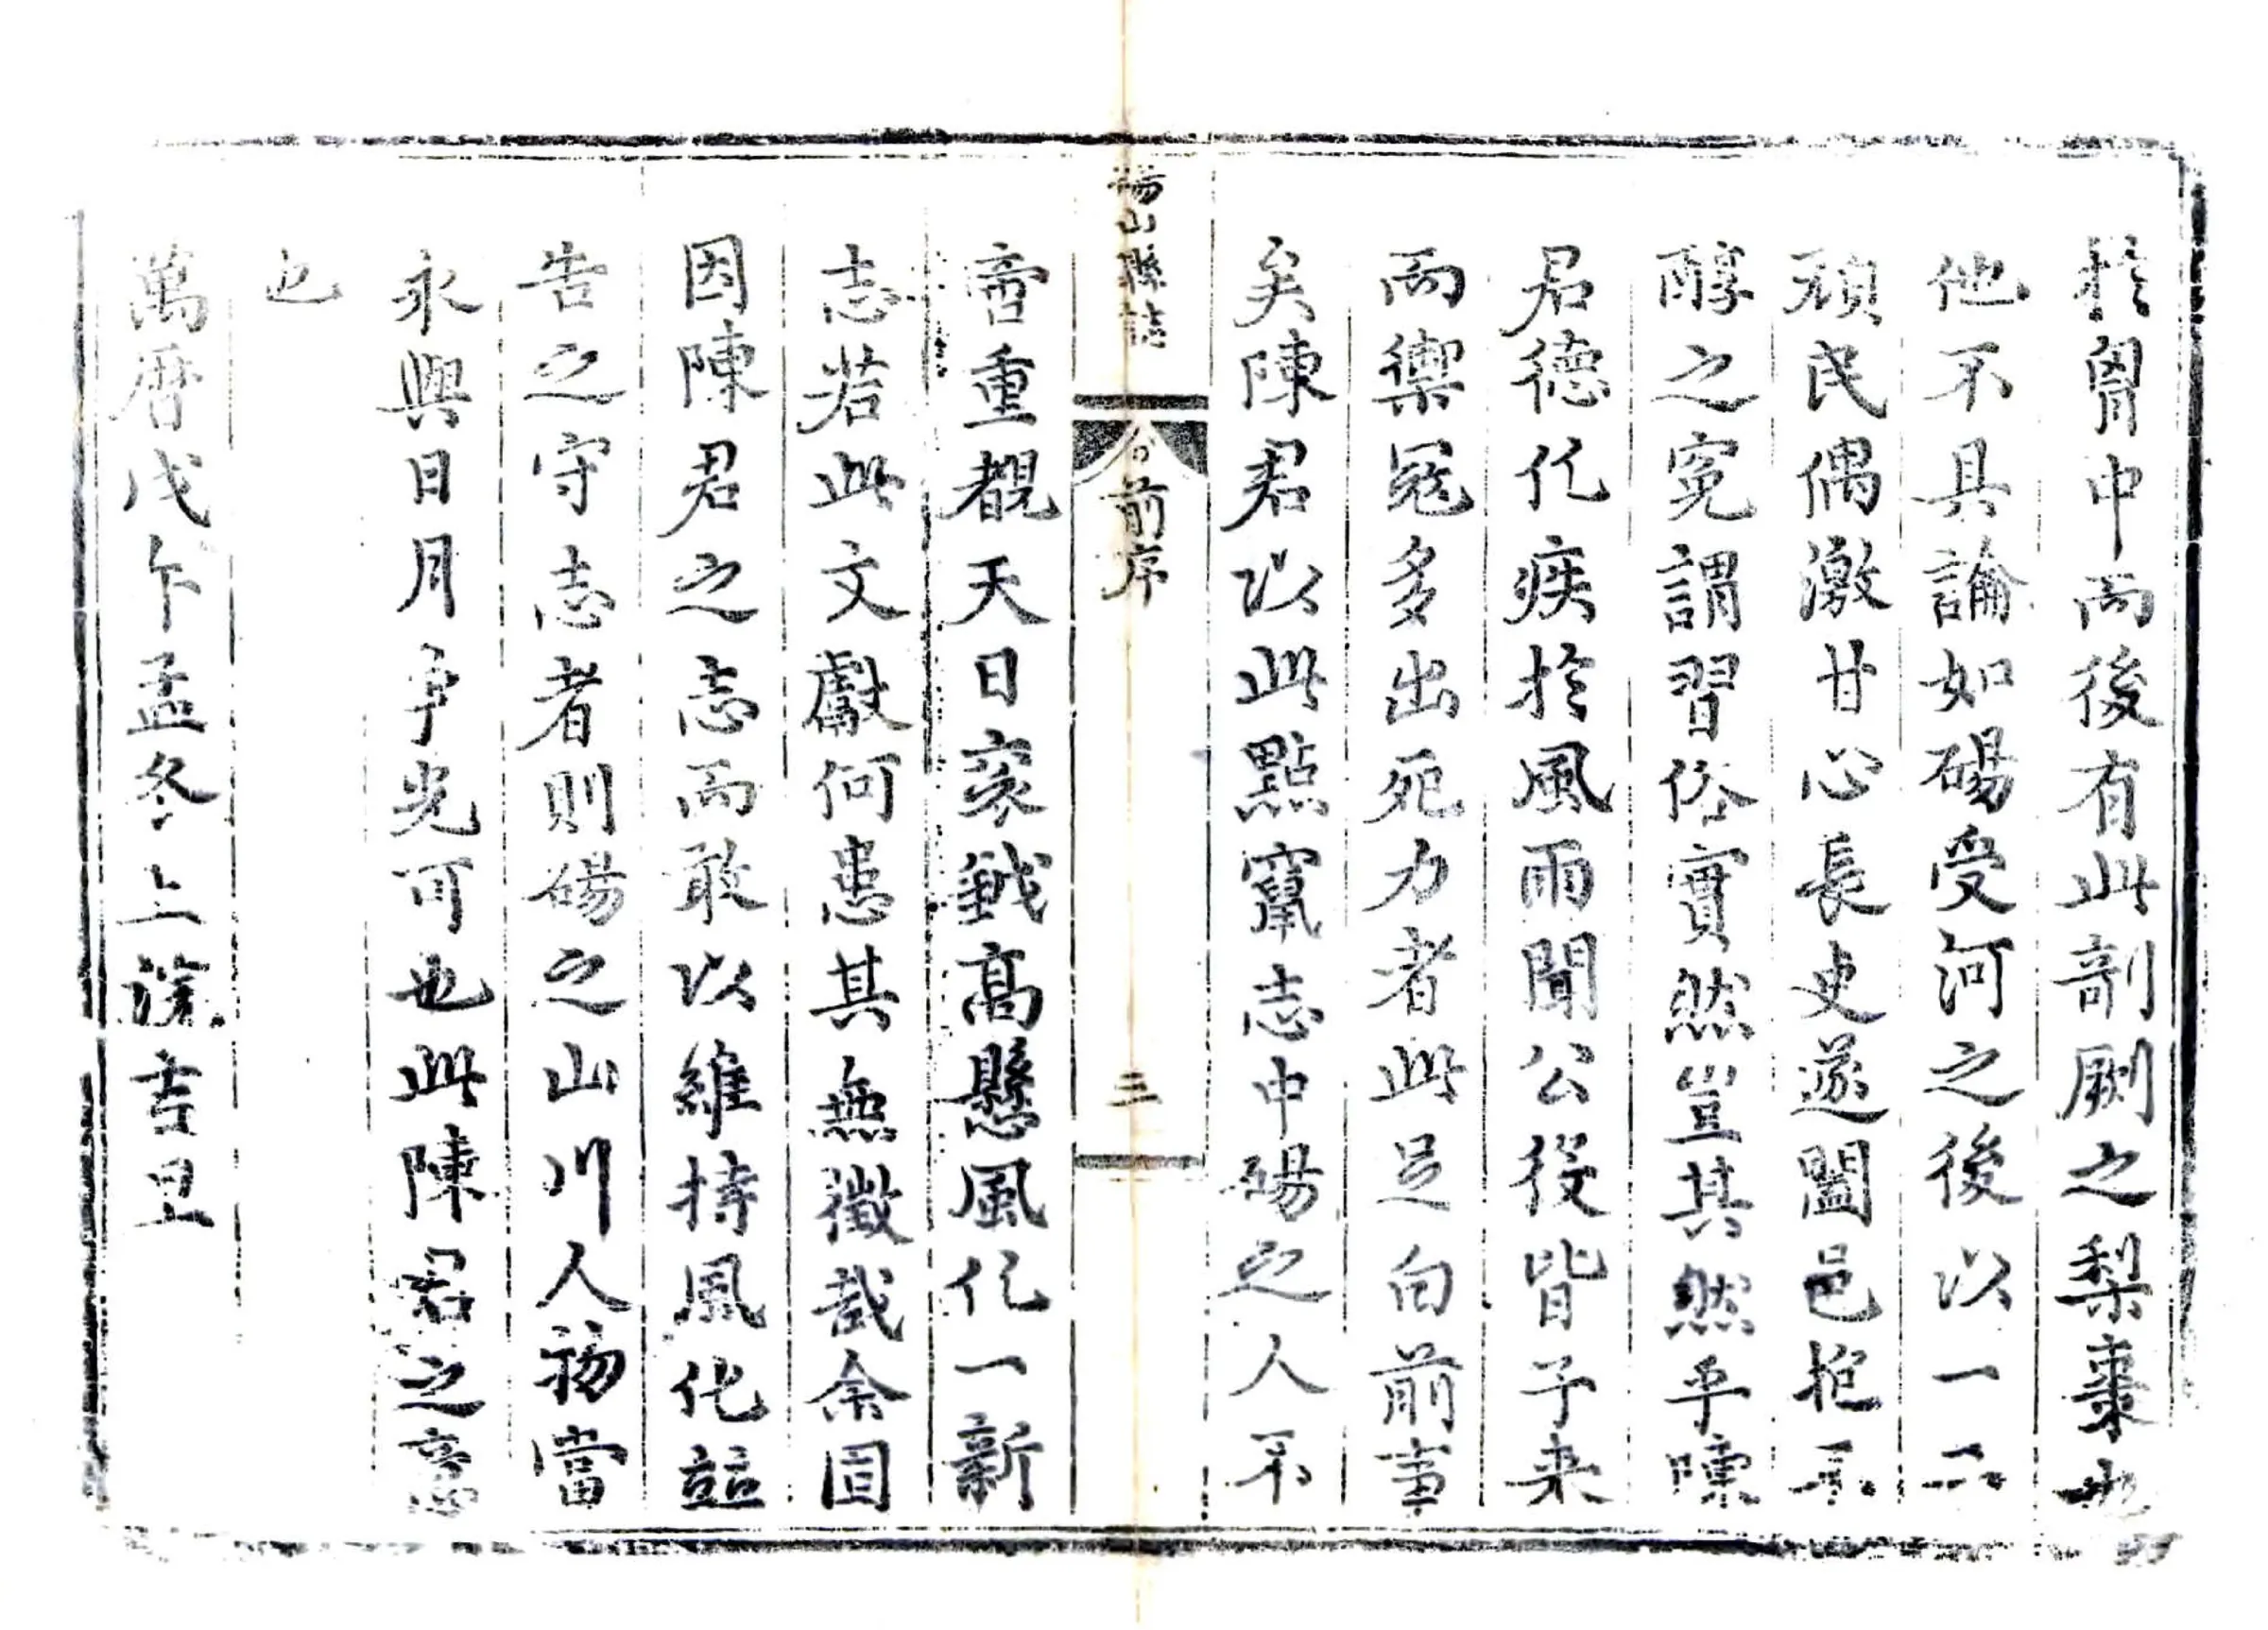 於胷中而後有此剞劂之梨棗也
他不具論如碭受河之後以一二
頑民偶激甘心長吏遂闔邑抱不
醇之寃謂習俗實然豈其然乎嚑
君德化疾於風雨聞公役皆子来
而禦冦多出死力者此足向前事
矣陳君以此點竄志中碭之人不
碭山縣誌 前序 三
啻重覩天日衮鉞高懸風化一新
志若此文獻何患其無徵哉余固
因陳君之志而敢以維持風化竝
告之守志者則碭之山川人物當
永與日月争光可也此陳君之意
也
萬曆戊午孟冬上浣吉旦